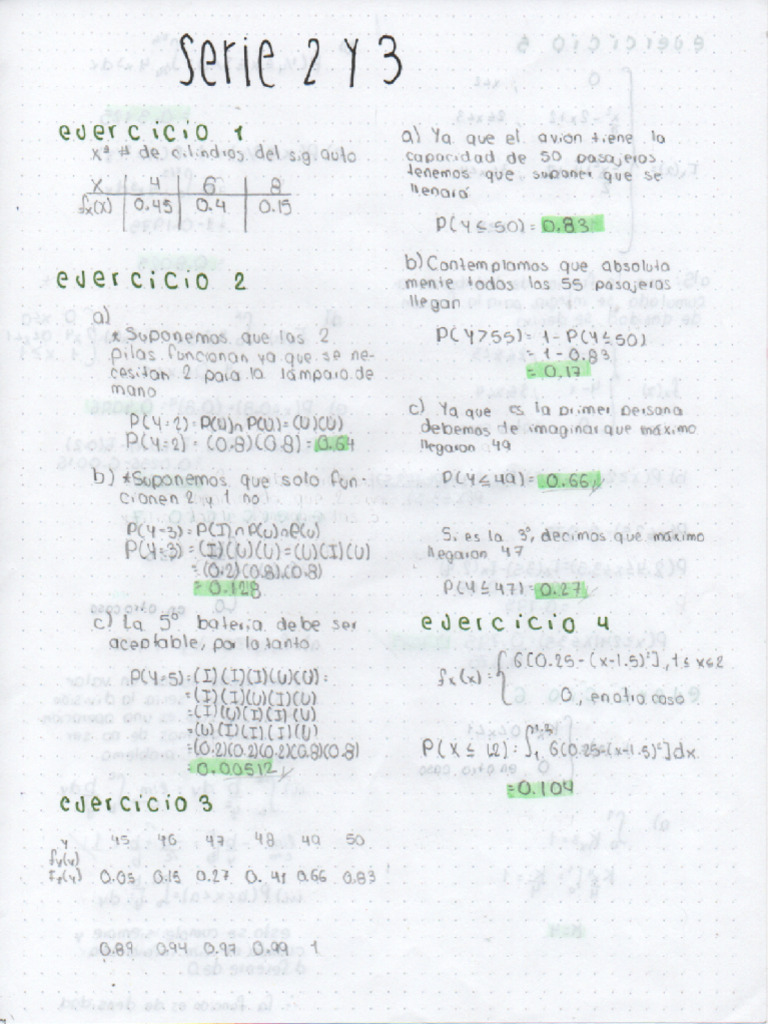 Serie 2 y 3
ejercicio 1
x = # de cilindros del sig auto
x 4 6 8
fx(x) 0.45 0.4 0.15
ejercicio 2
a)
*Suponemos que las 2
pilas funcionan ya que se ne-
cesitan 2 para la lámpara de
mano
P(Y=2) = P(U)∩P(U) = (U)(U)
P(Y=2) = (0.8)(0.8) = 0.64
b) *Suponemos que solo fun-
cionen 2 y 1 no
P(Y=3) = P(I)∩P(U)∩P(U)
P(Y=3) = (I)(U)(U) = (U)(I)(U)
= (0.2)(0.8)(0.8)
= 0.128
c) La 5° bateria debe ser
aceptable, por lo tanto
P(Y=5) = (I)(I)(I)(U)(U) =
= (I)(I)(U)(I)(U)
= (I)(U)(I)(I)(U)
= (U)(I)(I)(I)(U)
= (0.2)(0.2)(0.2)(0.8)(0.8)
= 0.00512
ejercicio 3
y 45 46 47 48 49 50
fy(y)
Fy(y) 0.05 0.15 0.27 0.41 0.66 0.83
0.89 0.94 0.97 0.99 1
a) Ya que el avion tiene la
capacidad de 50 pasajeros
tenemos que suponer que se
llenará
P(Y ≤ 50) = 0.83
b) Contemplamos que absoluta
mente todos los 55 pasajeros
llegan
P(Y>55) = 1 - P(Y≤50)
= 1 - 0.83
= 0.17
c) Ya que es la primer persona
debemos de imaginar que máximo
llegaron 49
P(Y≤49) = 0.66
Si es la 3°, decimos que máximo
llegaron 47
P(Y≤47) = 0.27
ejercicio 4
fx(x) = { 6[0.25 - (x-1.5)²], 1≤x≤2
0, en otro caso
P(X ≤ 1.2) = ∫ 6[0.25 - (x-1.5)²]dx
= 0.104